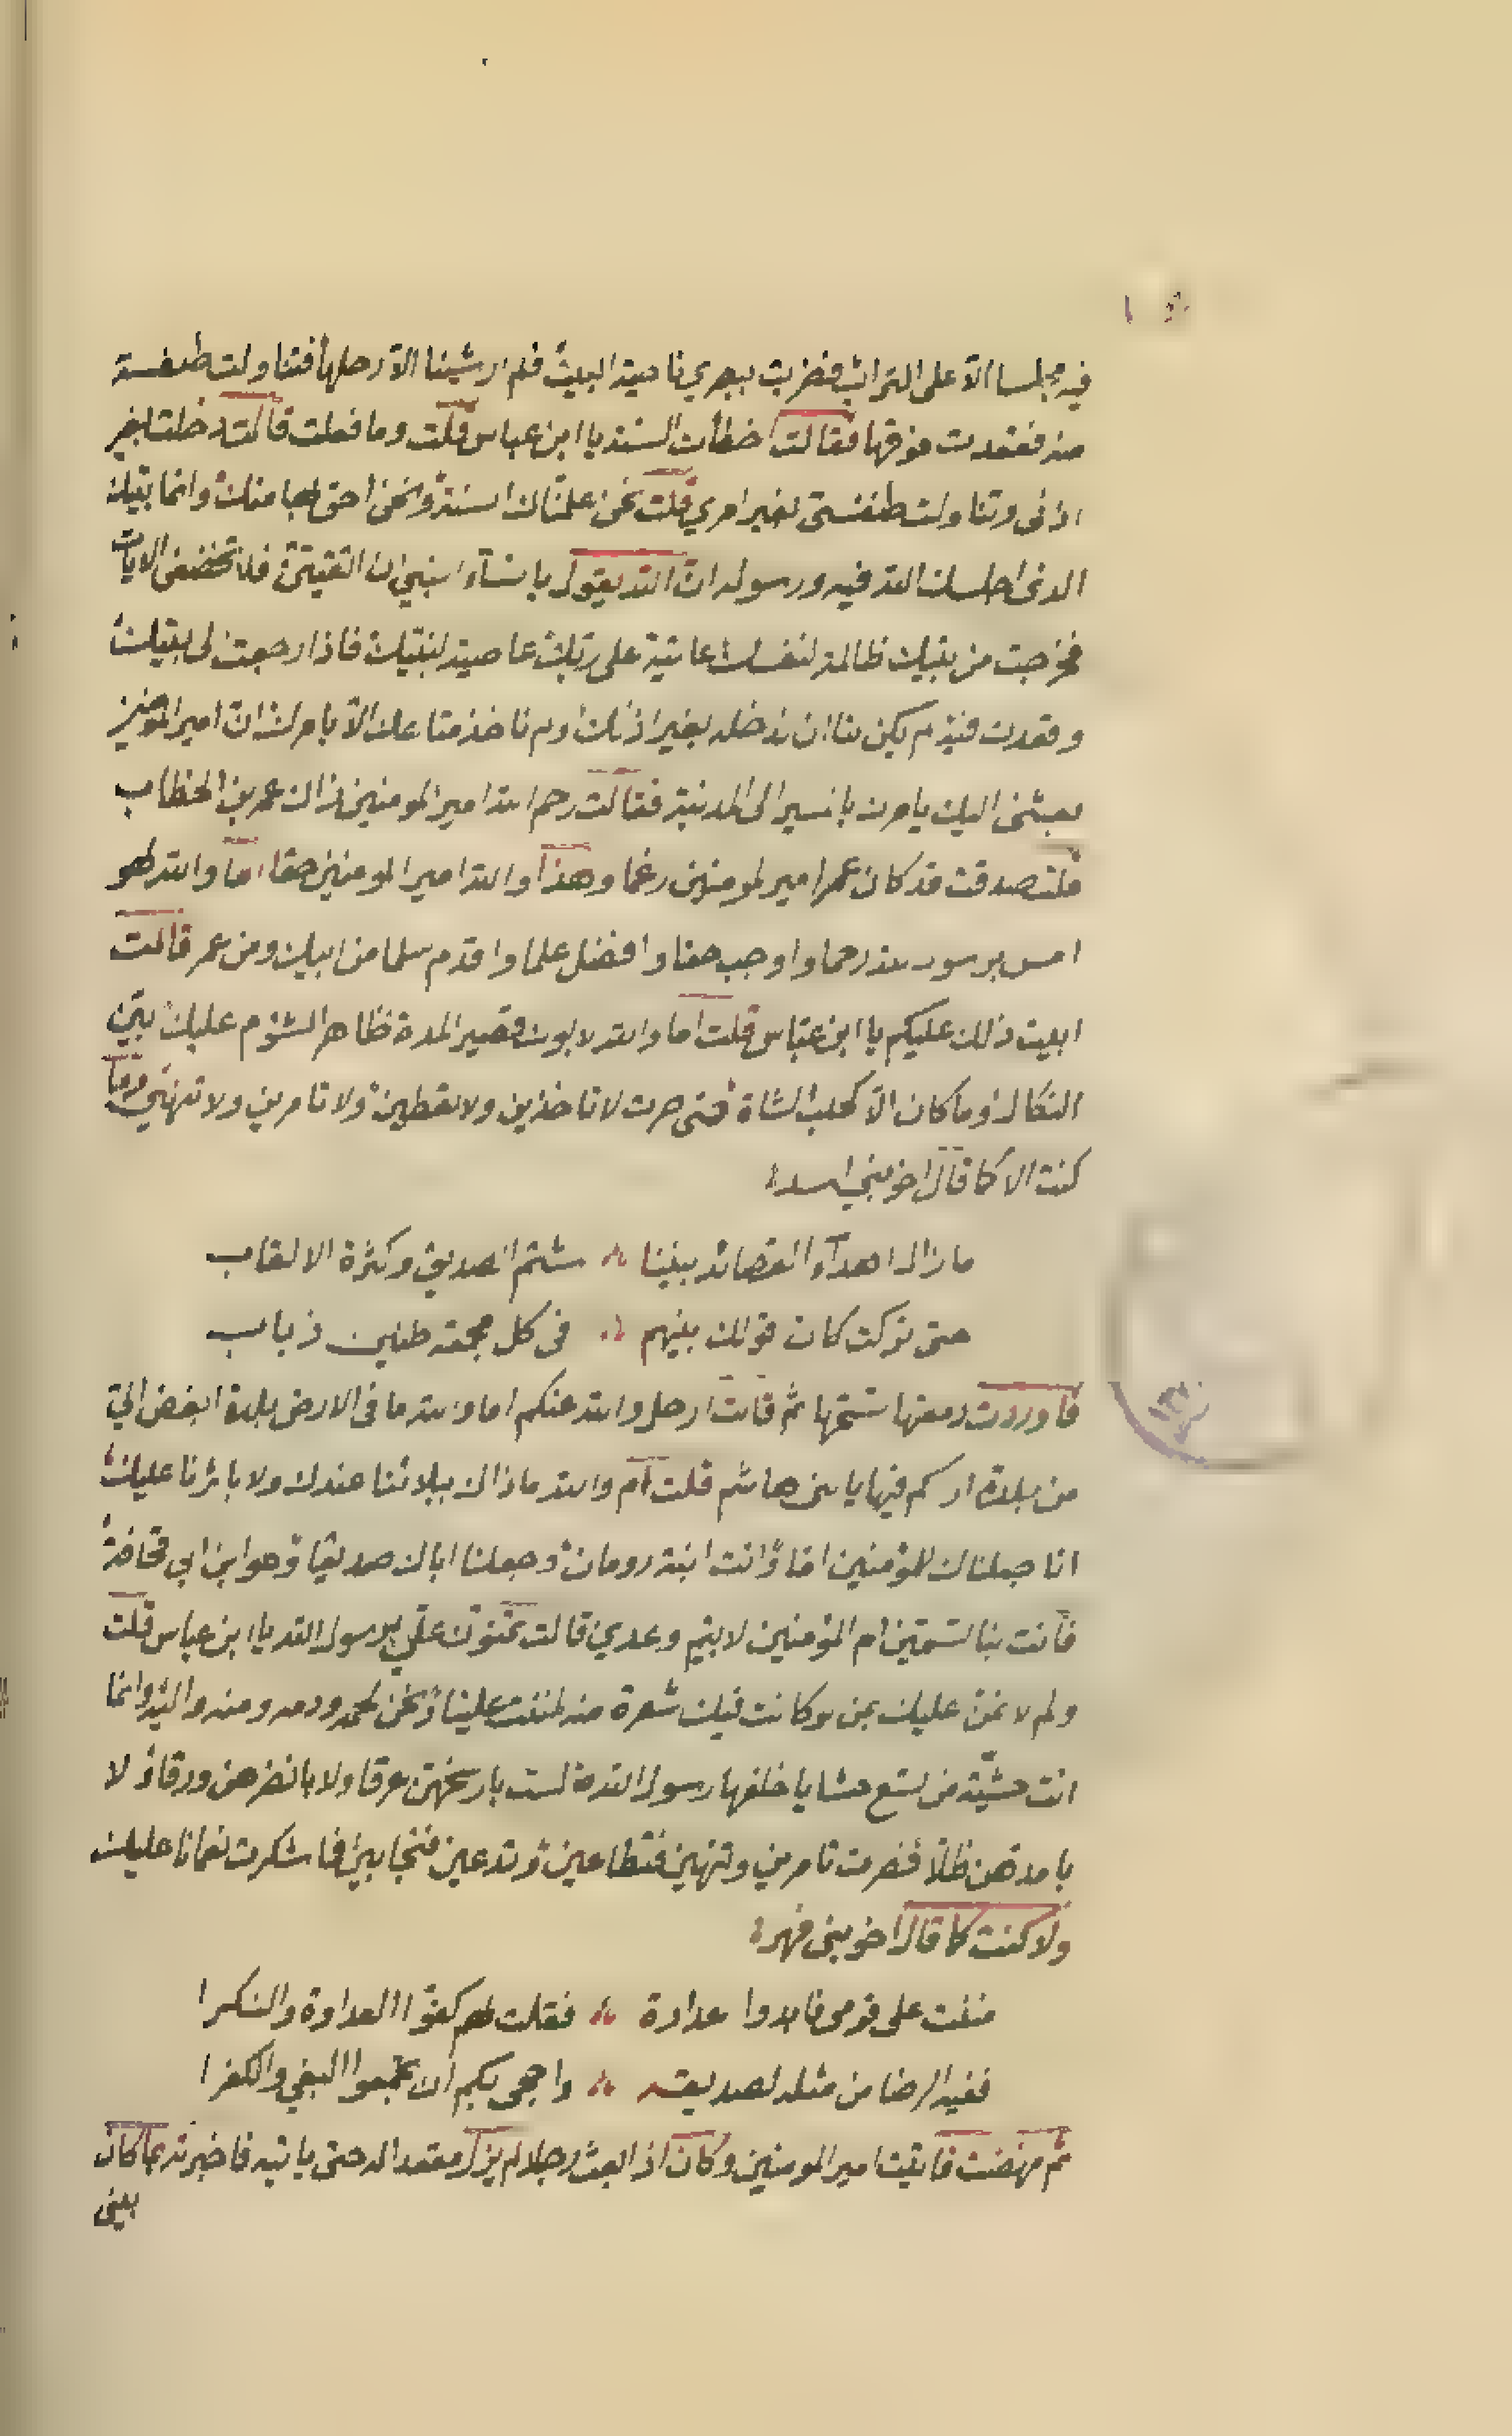 فيه مجلسا الّا على التراب فضربت ببصري ناحية البيت فلم ار شيئا الّا رحلها فتناولت طنفسة
منه فقعدت فوقها فقالت اخطأت السنة يا ابن عباس قلت وما فعلت قالت دخلت بغير
اذنى وتناولت طنفستى بغير امري قلت نحن علّمناك السنة ونحن احق بها منك وانما بيتك
الذى اجلسك الله فيه ورسوله انّ الله يقول يا نساء النبي ان اتقيتنّ فلا تخضعن الايات
فخرجت من بيتك ظالمة لنفسك عاتية على ربّك عاصية لنبيّك فاذا رجعت الى بيتك
وقعدت فيه لم يكن لنا ان ندخله بغير اذنك ولم ناخذ متاعك الّا بامرك انّ امير المومنين
بعثنى اليك يامرك بالمسير الى المدينة فقالت رحم الله امير المومنين ذاك عمر بن الخطاب
قلت صدقت قد كان عمر امير المومنين رغما وهذا والله امير المومنين حقا اما والله لهو
امس برسول الله رحما واوجب حقا وافضل علما واقدم سلما من ابيك ومن عمر قالت
ابيت ذلك عليكم يا ابن عبّاس قلت اما والله لابوك قصير المدة ظاهر الشؤم عليك بيّن
النكال وما كان الّا كحلب الشاة حتى صرت لا تاخذين ولا تعطين ولا تامرين ولا تنهين وما
كنت الا كما قال اخو بني اسد
ما زال اهداء القصائد بيننا شتم الصديق وكثرة الالقاب
حتى تركت كان قولك بينهم فى كل مجمعة طنين ذباب
فاوردت دمعتها ثمّ قالت ارحل والله عنكم اما والله ما فى الارض بلدة ابغض اليّ
من بلدة اركم فيها يا بنى هاشم قلت لم والله ما ذاك ببلائنا عندك ولا باثرنا عليك
انا جعلناك للمؤمنين اما وانت ابنة رومان وجعلنا اباك صديقا وهو ابن ابي قحافة
فانت بنا تسمّين ام المؤمنين لا بتيم وعدي قالت تمنون عليّ برسول الله يا ابن عباس قلت
ولم لا نمنّ عليك بمن لو كانت فيك شعرة منه لمننت علينا ونحن لحمه ودمه ومنه واليه وانما
انت حشيّة من تسع حشايا خلفها رسول الله ص لست بارسخهنّ عرقا ولا بانضرهن ورقا ولا
بامدهن ظلّا فصرت تامرين وتنهين فتطاعين وتدعين فتجابين فما شكرت نعمانا عليك
ولا كنت كما قال اخو بنى فهر
مننت على قومى فابدوا عداوة فقلت لهم كفّوا العداوة والشكرا
ففيه الرضا من مثله لصديقه واحجى بكم ان تجمعوا البغي والكفرا
ثمّ نهضت فاتيت امير المومنين وكان اذا بعث رجلا لم يزل مقعدا له حتى ياتيه فاخبرته بما كان
بينى